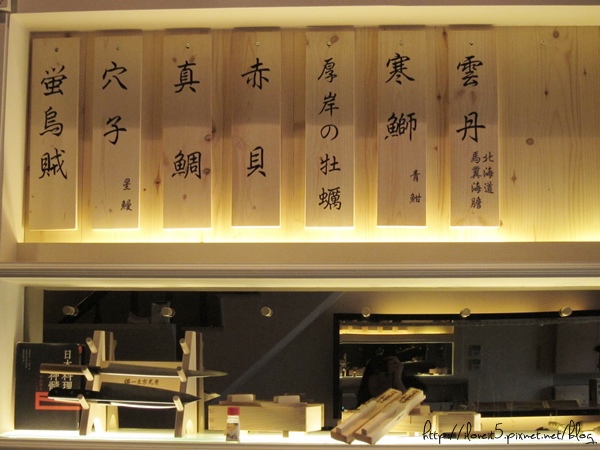 雲丹
北海道
馬糞海膽
寒鰤
青魽
厚岸の牡蠣
赤貝
真鯛
穴子
星鰻
螢烏賊
日本料理
神髓
http://ilove5.pixnet.net/blog